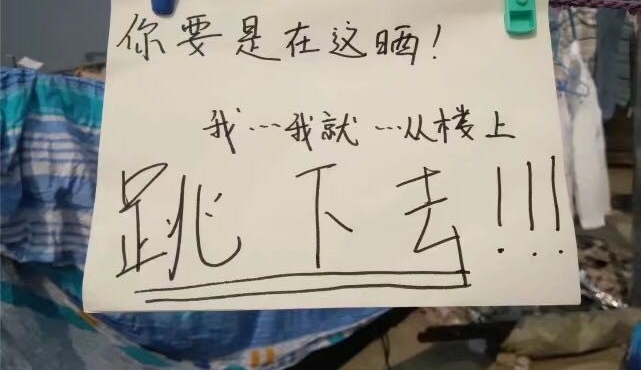 你要是在这晒！
我…我就…从楼上
跳下去!!!